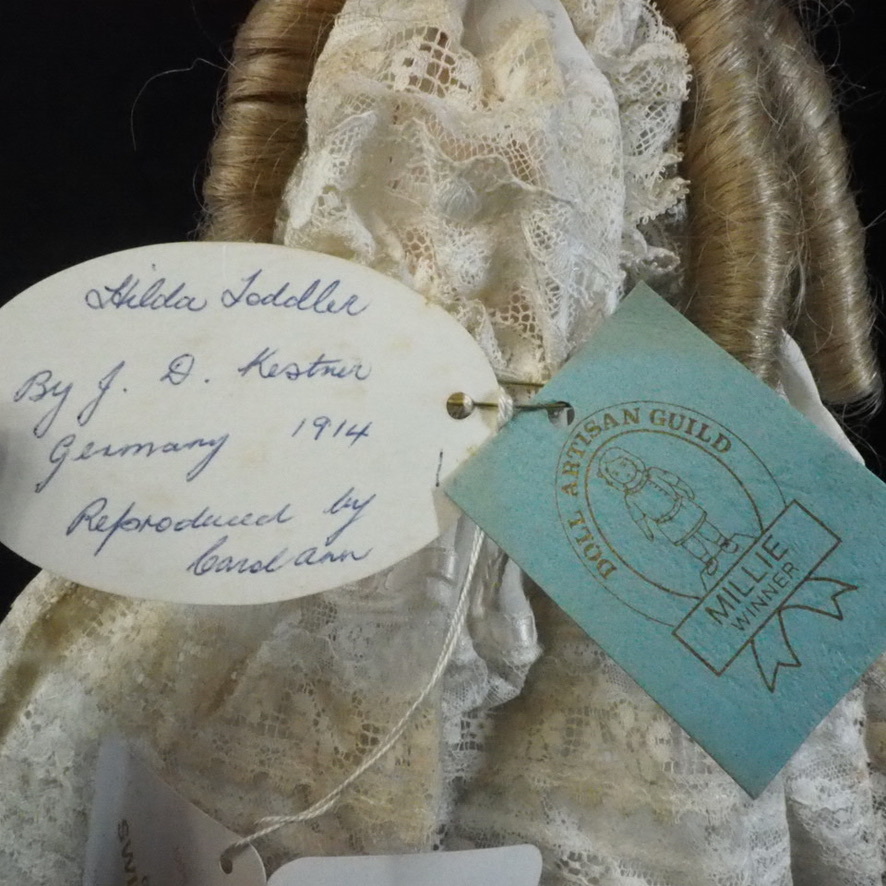 Hilda Toddler
By J. D. Kestner
Germany 1914
Reproduced by
Carol Ann
DOLL ARTISAN GUILD
MILLIE
WINNER